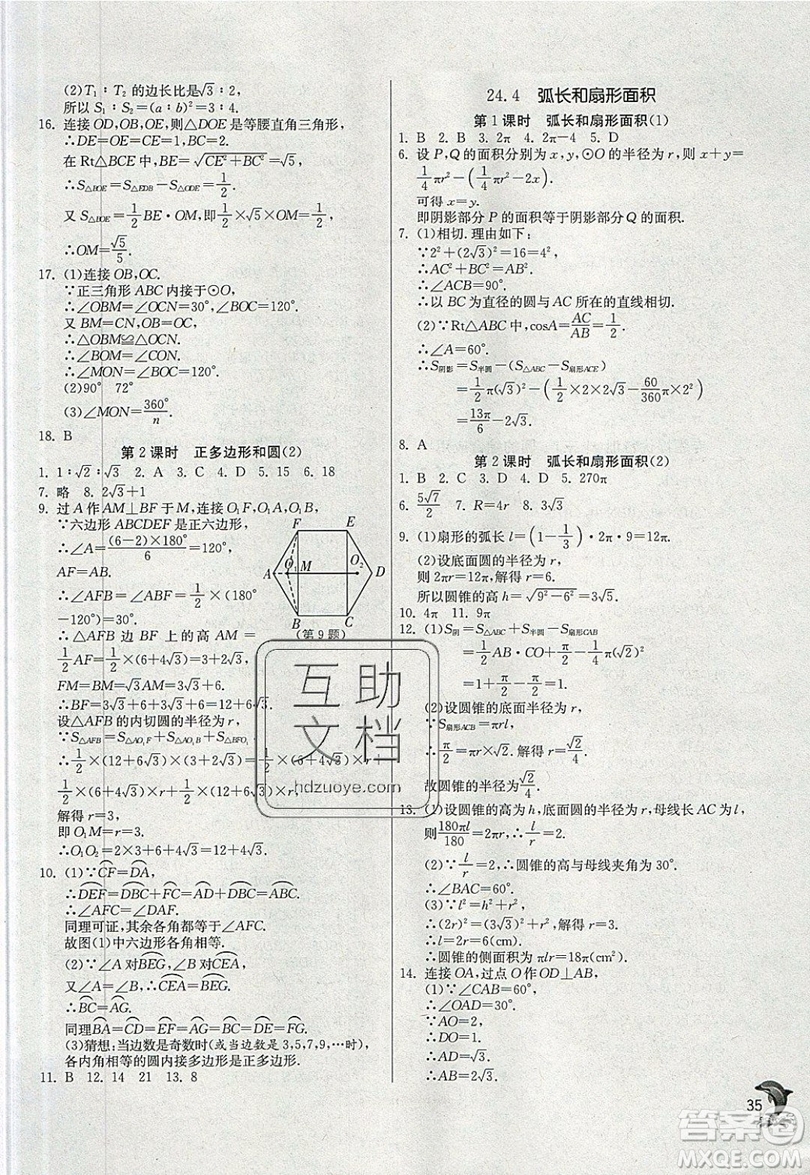 (2)T₁∶T₂ 的边长比是√3∶2,
所以 S₁∶S₂=(a∶b)²=3∶4.
16. 连接 OD,OB,OE,则△DOE 是等腰直角三角形,
∴DE=√2,OC=1.
在 Rt△BCE 中,BE=√(CE²+BC²)=√5.
∴S△BOE=S△EDB-S△ODE=1/2.
又 S△BOE=1/2 BE·OM,即1/2×√5×OM=1/2,
∴OM=√5/5.
17. (1)连接 OB,OC.
∵正三角形 ABC 内接于⊙O,
∴∠OBM=∠OCN=30°,∠BOC=120°.
又 BM=CN,OB=OC,
∴△OBM≌△OCN.
∴∠BOM=∠CON.
∴∠MON=∠BOC=120°.
(2)90° 72°
(3)∠MON=360°/n.
18. B
第 2 课时 正多边形和圆(2)
1. 1∶√2∶√3 2. A 3. C 4. D 5. 15 6. 18
7. 略 8. 2√3+1
9. 过 A 作 AM⊥BF 于 M, 连接 O₁F,O₁A,O₁B,
∵六边形 ABCDEF 是正六边形,
∴∠A=(6-2)×180°/6=120°,
AF=AB.
∴∠AFB=∠ABF=1/2×(180°
-120°)=30°.
∴△AFB 边 BF 上的高 AM=
1/2AF=1/2×(6+4√3)=3+2√3,
FM=BM=√3AM=3√3+6.
∴BF=3√3+6+3√3+6=12+6√3.
设△AFB 的内切圆的半径为 r,
∵S△AFB=S△AO₁F+S△AO₁B+S△BFO₁,
∴1/2×(12+6√3)×(3+2√3)=1/2×(6+4√3)×r+
1/2×(6+4√3)×r+1/2×(12+6√3)×r,
解得 r=3.
即 O₁M=r=3.
∴O₁O₂=2×3+6+4√3=12+4√3.
F E
A O₁ M O₂ D
B C
(第 9 题)
10. (1)∵CF=DA,
∴DEF=DAF-DA=ABC+AF-CF=ABC.
∴∠AFC=∠DAF.
同理可证,其余各角都等于∠AFC.
故图(1)中六边形各角相等.
(2)∵∠A对BEG,∠B对CEA,
又∵∠A=∠B,∴CEA=BEG.
∴BC=AG.
同理BA=CD=EF=AG=BC=DE=FG.
(3)猜想:当边数是奇数时(或当边数是 3,5,7,9,…时),
各内角相等的圆内接多边形是正多边形.
11. B 12. 14 21 13. 8
24.4 弧长和扇形面积
第 1 课时 弧长和扇形面积(1)
1. B 2. B 3. 2π 4. 2π-4 5. D
6. 设 P,Q 的面积分别为 x,y,⊙O 的半径为 r,则 x+y=
1/4πr²-(1/4πr²-2x).
可得 x=y.
即阴影部分 P 的面积等于阴影部分 Q 的面积.
7. (1)相切. 理由如下:
∵2²+(2√3)²=16=4²,
∴AC²+BC²=AB².
∴∠ACB=90°.
∴以 BC 为直径的圆与 AC 所在的直线相切.
(2)∵Rt△ABC 中,cosA=AC/AB=1/2,
∴∠A=60°.
∴S阴影=S半圆-(S△ABC-S扇形ACE)
=1/2π(√3)²-(1/2×2×2√3-60/360π×2²)
=13π/6-2√3.
8. A
第 2 课时 弧长和扇形面积(2)
1. B 2. B 3. D 4. D 5. 270π
6. 5√7/2 7. R=4r 8. 3√5
9. (1)扇形的弧长 l=(1-1/3)·2π·9=12π.
(2)设底面圆的半径为 r,
则 2πr=12π,解得 r=6.
所以圆锥的高 h=√(9²-6²)=3√5.
10. 4π 11. 9π
12. (1)S阴=S△ABC+S半圆-S扇形CAB
=1/2AB·CO+1/2π-1/4π(√2)²
=1+π/2-π/2=1.
(2)设圆锥的底面半径为 r,
∵S扇形=πrl,
∴π/2=π·√2r. 解得 r=√2/4.
故圆锥的半径为√2/4.
13. (1)设圆锥的高为 h,底面圆的半径为 r,母线长 AC 为 l,
则180πl/180=2πr,l/r=2.
(2)∵l/r=2,∴圆锥的高与母线夹角为 30°.
∴∠BAC=60°.
(3)∵l²=h²+r²,
∴(2r)²=(3√3)²+r²,解得 r=3.
∴l=2r=6(cm).
∴圆锥的侧面积为 πlr=18π(cm²).
14. 连接 OA,过点 O 作 OD⊥AB,
(1)∵∠CAB=60°,
∴∠OAD=30°.
∵AO=2,
∴DO=1.
∴AD=√3.
∴AB=2√3.
互助
文档
hdzuoye.com
35
答案圈
MXQE.COM